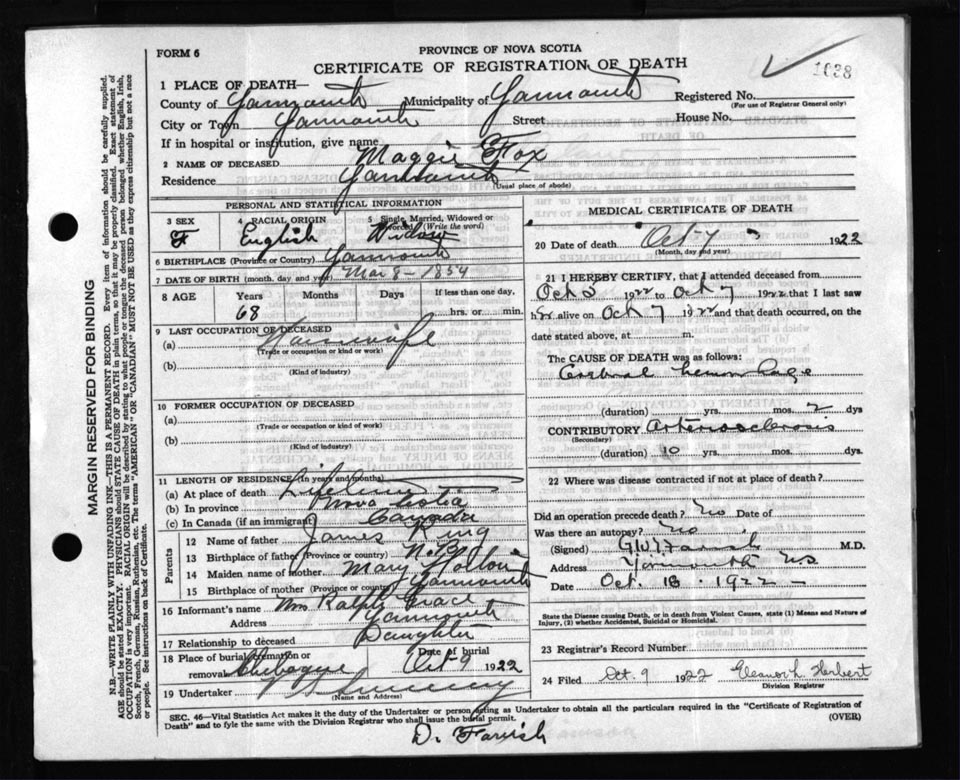 FORM 6
PROVINCE OF NOVA SCOTIA
CERTIFICATE OF REGISTRATION OF DEATH
1638
1 PLACE OF DEATH—
County of Yarmouth Municipality of Yarmouth Registered No.
(For use of Registrar General only)
City or Town Yarmouth Street House No.
If in hospital or institution, give name
2 NAME OF DECEASED Maggie Fox
Residence Yarmouth
(Usual place of abode)
PERSONAL AND STATISTICAL INFORMATION
3 SEX 4 RACIAL ORIGIN 5 Single, Married, Widowed or Divorced (Write the word)
F English Widow
6 BIRTHPLACE (Province or Country) Yarmouth
7 DATE OF BIRTH (month, day and year) Mar 8 - 1854
8 AGE Years Months Days If less than one day.
68 hrs. or min.
9 LAST OCCUPATION OF DECEASED
(a) Housewife
(Trade or occupation or kind or work)
(b)
(Kind of industry)
10 FORMER OCCUPATION OF DECEASED
(a)
(Trade or occupation or kind of work)
(b)
(Kind of industry)
11 LENGTH OF RESIDENCE (In years and months)
(a) At place of death Lifetime
(b) In province Nova Scotia
(c) In Canada (if an immigrant) Canada
Parents
12 Name of father James King
13 Birthplace of father (Province or country)
14 Maiden name of mother Mary
15 Birthplace of mother (Province or country) Yarmouth
16 Informant's name Mrs Ralph
Address Yarmouth
17 Relationship to deceased Daughter
18 Place of burial, cremation or removal Chebogue Date of burial Oct 9 1922
19 Undertaker Sweeny
(Name and Address)
MEDICAL CERTIFICATE OF DEATH
20 Date of death Oct 7 1922
(Month, day and year)
21 I HEREBY CERTIFY, that I attended deceased from
Oct 5 1922 to Oct 7 1922 that I last saw
her alive on Oct 7 1922 and that death occurred, on the
date stated above, at m.
The CAUSE OF DEATH was as follows:
Cerebral hemorrhage
(duration) yrs. mos. 2 dys
CONTRIBUTORY Arteriosclerosis
(Secondary)
(duration) 10 yrs. mos. dys.
22 Where was disease contracted if not at place of death?
Did an operation precede death? No Date of
Was there an autopsy? No.
(Signed) Farish M.D.
Address Yarmouth N.S
Date Oct. 18 - 1922 -
State the Disease causing Death, or in death from Violent Causes, state (1) Means and Nature of
Injury, (2) whether Accidental, Suicidal or Homicidal.
23 Registrar's Record Number
24 Filed Oct. 9 1922 Eleanor L. Herbert
Division Registrar
SEC. 46—Vital Statistics Act makes it the duty of the Undertaker or person acting as Undertaker to obtain all the particulars required in the "Certificate of Registration of
Death" and to fyle the same with the Division Registrar who shall issue the burial permit. (OVER)
D. Farish
MARGIN RESERVED FOR BINDING
N.B.—WRITE PLAINLY WITH UNFADING INK—THIS IS A PERMANENT RECORD. Every item of information should be carefully supplied.
AGE should be stated EXACTLY. PHYSICIANS should STATE CAUSE OF DEATH in plain terms, so that it may be properly classified. Exact statement of
OCCUPATION is very important. RACIAL ORIGIN will be described by stating to what people or tongue the deceased person belonged whether English, Irish,
Scotch, French, German, Russian, Ruthenian, etc. The terms "AMERICAN" OR "CANADIAN" MUST NOT BE USED as they express citizenship but not a race
or people. See instructions on back of Certificate.